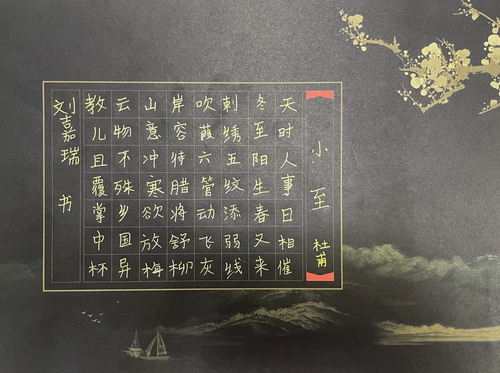 小至
杜甫
天时人事日相催
冬至阳生春又来
刺绣五纹添弱线
吹葭六管动飞灰
岸容待腊将舒柳
山意冲寒欲放梅
云物不殊乡国异
教儿且覆掌中杯
刘嘉瑞 书